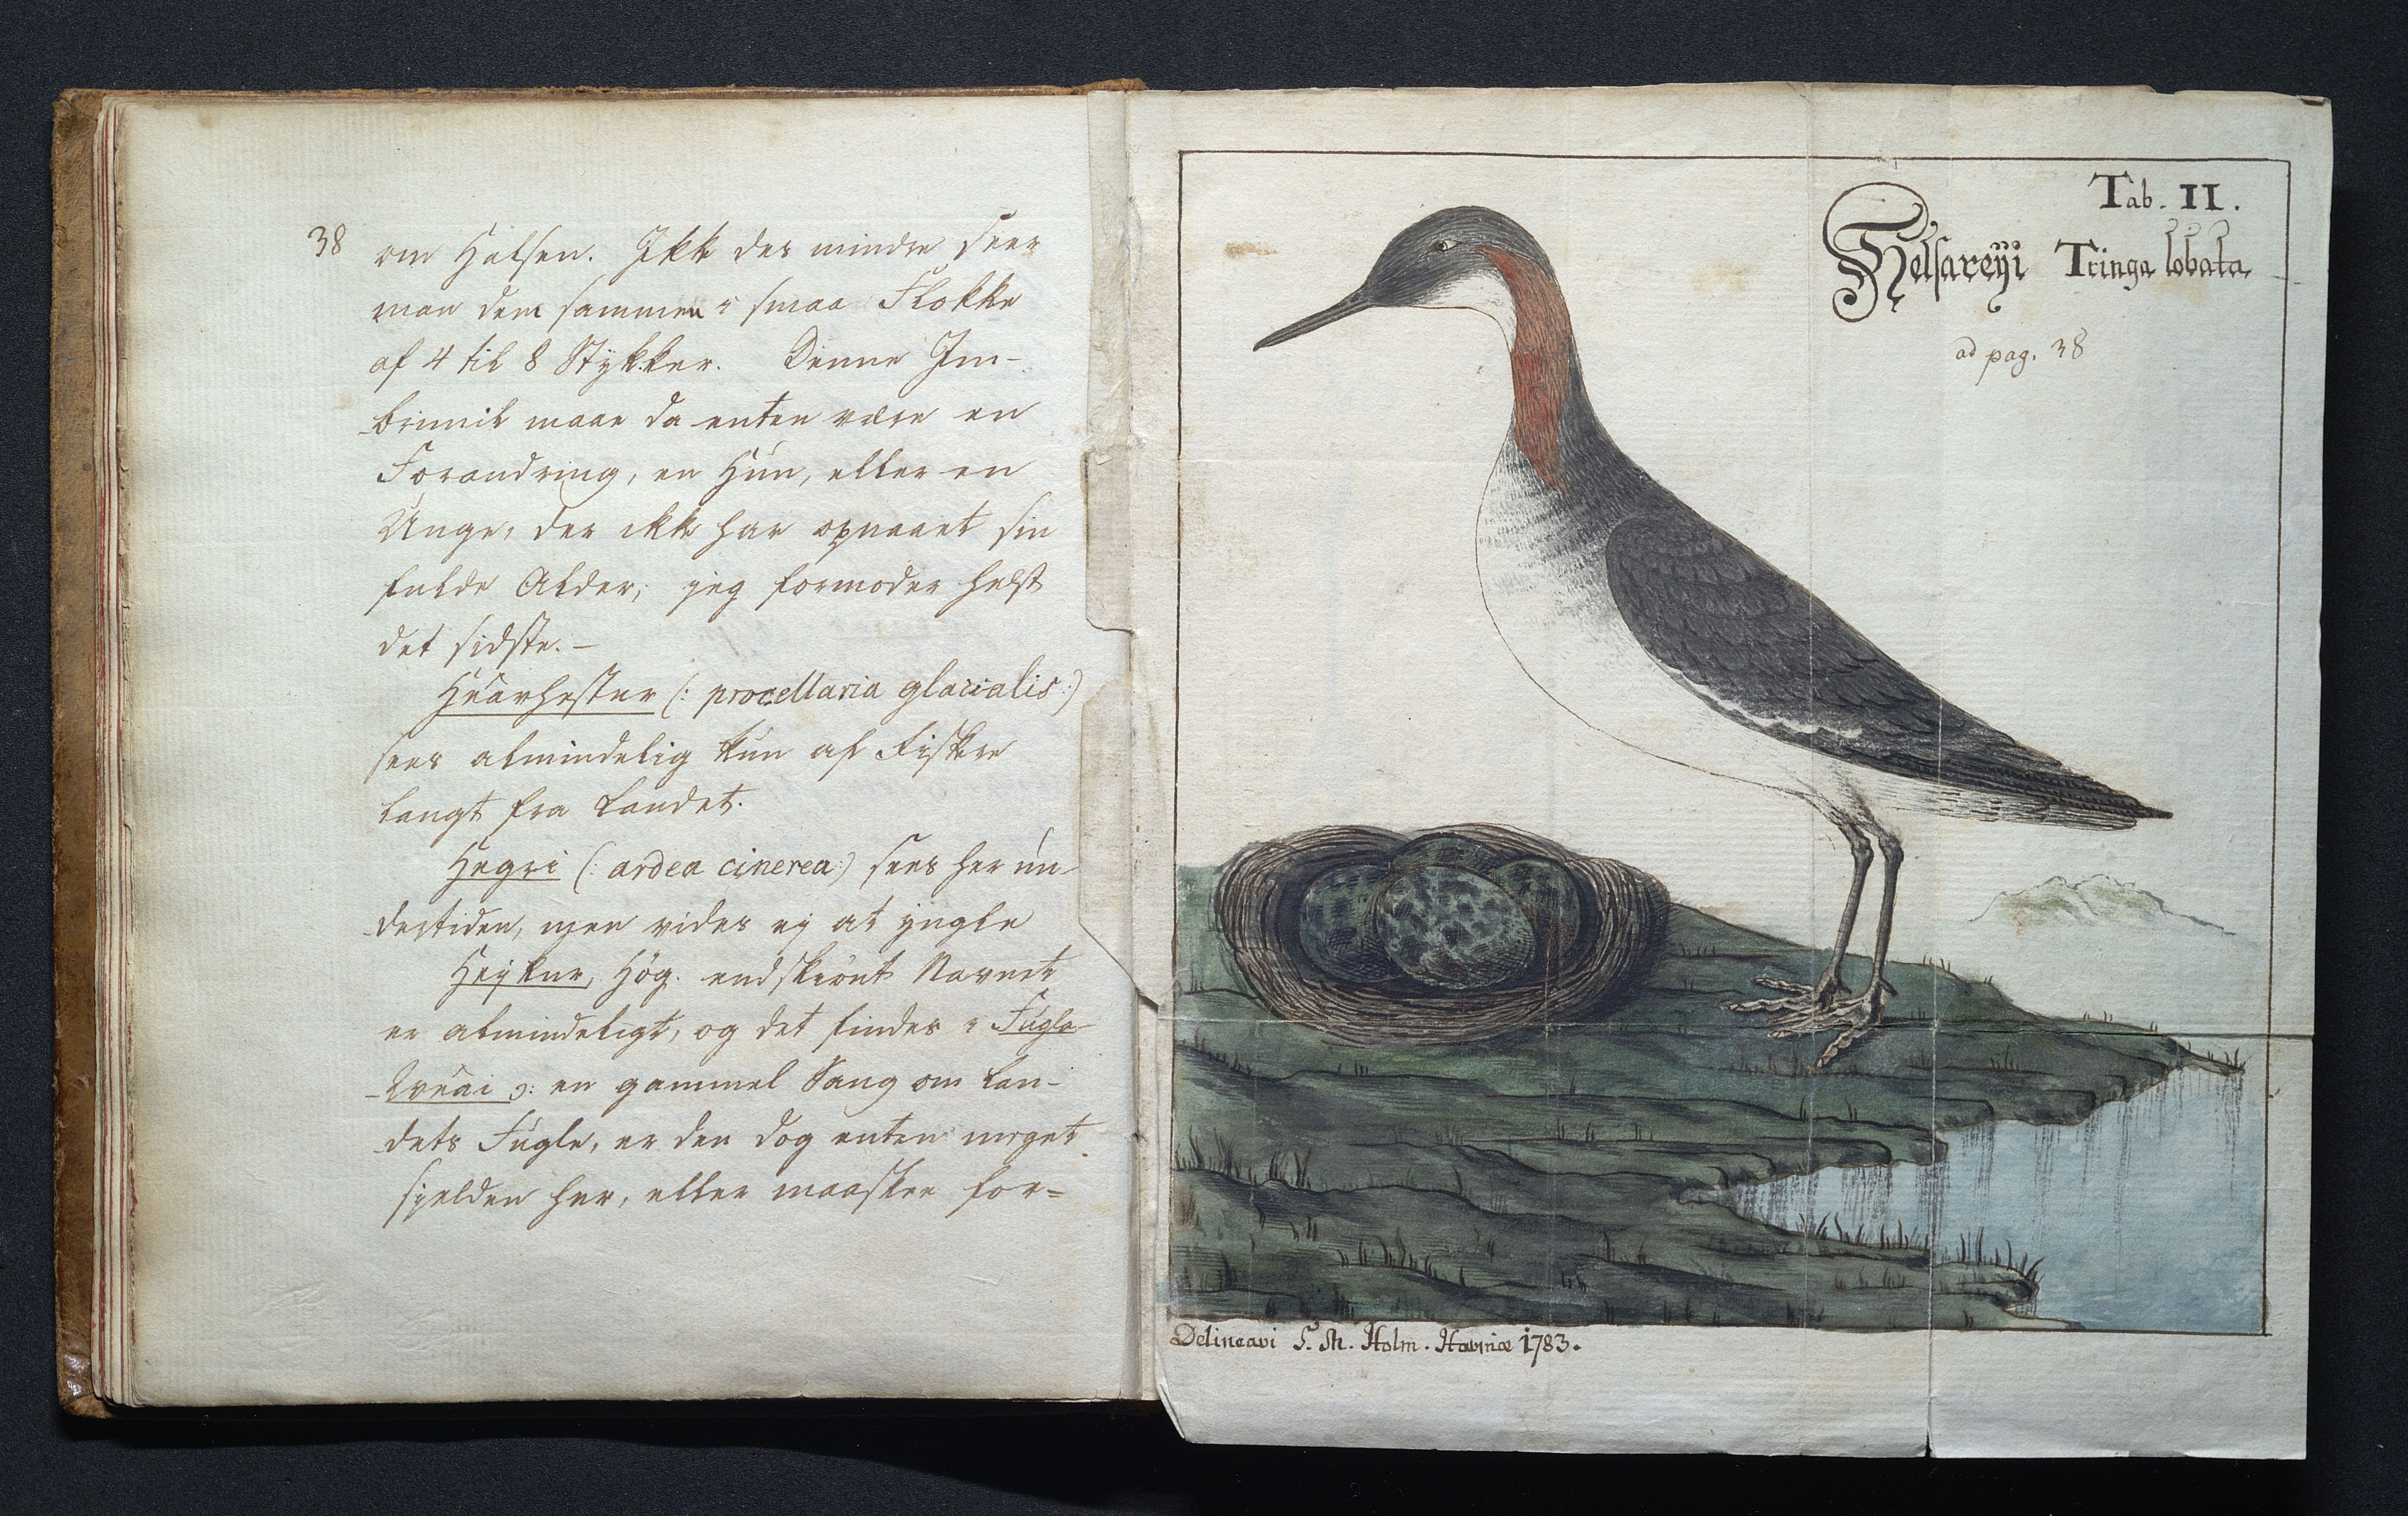 38
om Halsen. Ikke des mindre seer
man dem sammen i smaa Flokke
af 4 til 8 Stykker. Denne Im-
brimil maae da enten være en
Forandring, en Hun, eller en
Unge, der ikke har opnaaet sin
fulde Alder; jeg formoder helst
det sidste.-
Huarhestur (: procellaria glacialis:)
sees almindelig kun af Fiskere
langt fra Landet.
Hegri (: ardea cinerea:) sees her un-
dertiden, men vides ej at yngle
Heykur, Hög. endskiönt Navnet
er almindeligt, og det findes i Fugla-
kvæai ɔ: en gammel Sang om Lan-
dets Fugle, er den dog enten meget
sjelden her, eller maaskee for=
Tab. II.
Helsareyi Tringa lobata
ad pag. 38
Delineavi Holm. Havniæ 1783.